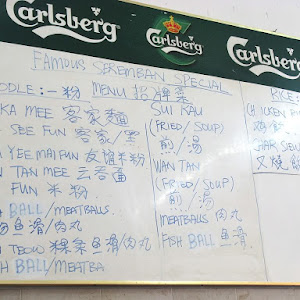 Carlsberg Carlsberg Carlsberg
FAMOUS SEREMBAN SPECIAL
MENU 招牌菜
KA MEE 客家麵
SEE FUN 客家/黑
YEE MAI FUN 友誼米粉
TAN MEE 云吞面
FUN 米粉
BALL/MEATBALLS
魚滑/肉丸
TEOW 粿条魚滑/肉丸
BALL/MEATBA
SUI KAU
(FRIED/SOUP)
煎/湯
WAN TAN
(FRIED/SOUP)
煎/湯
MEATBALLS 肉丸
FISH BALL 魚滑
RICE
CHICKEN
CHAR SIEW
叉燒